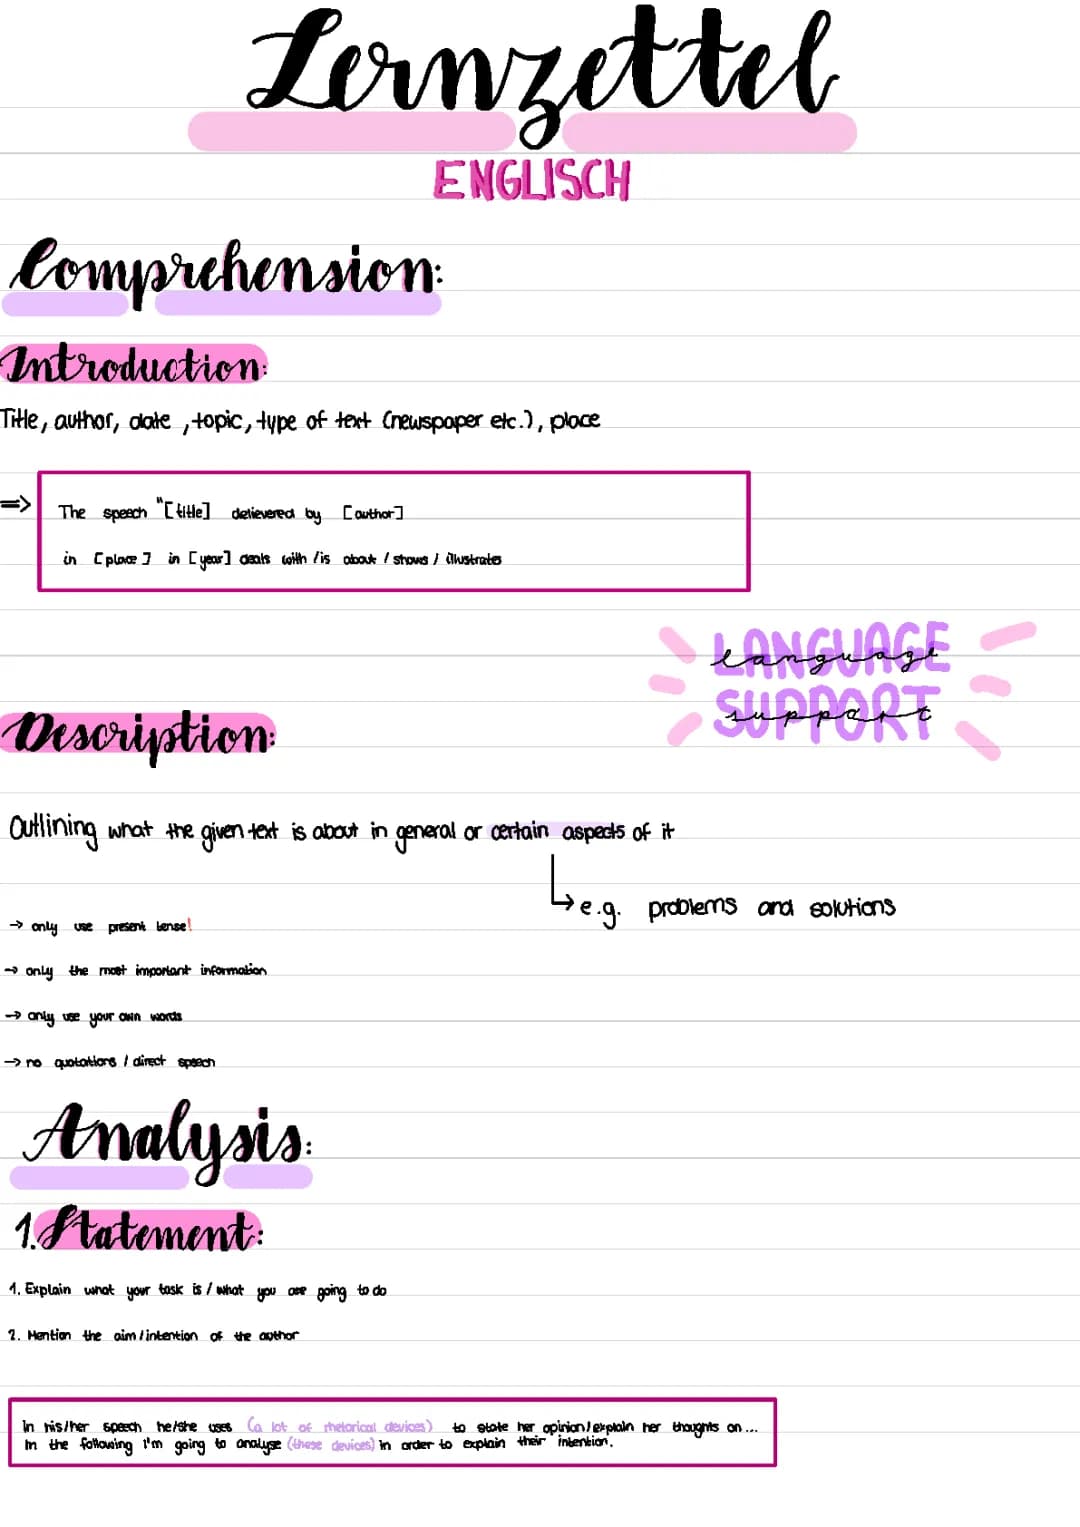 Lernzettel
ENGLISCH
Comprehension:
Introduction:
Title, author, date, topic, type of text (newspaper etc.), place
=> The speech "[title] delievered by [author]
in [place] in [year] deals with / is about / shows / illustrates
LANGUAGE
language
SUPPORT
support
Description:
Outlining what the given text is about in general or certain aspects of it
↳ e.g. problems and solutions
→ only use present tense!
→ only the most important information
→ only use your own words
→ no quotations / direct speech
Analysis:
1. Statement:
1. Explain what your task is / what you are going to do
2. Mention the aim/intention of the author
In his/her speech he/she uses (a lot of rhetorical devices) to state her opinion/explain her thoughts on...
In the following I'm going to analyse (these devices) in order to explain their intention.